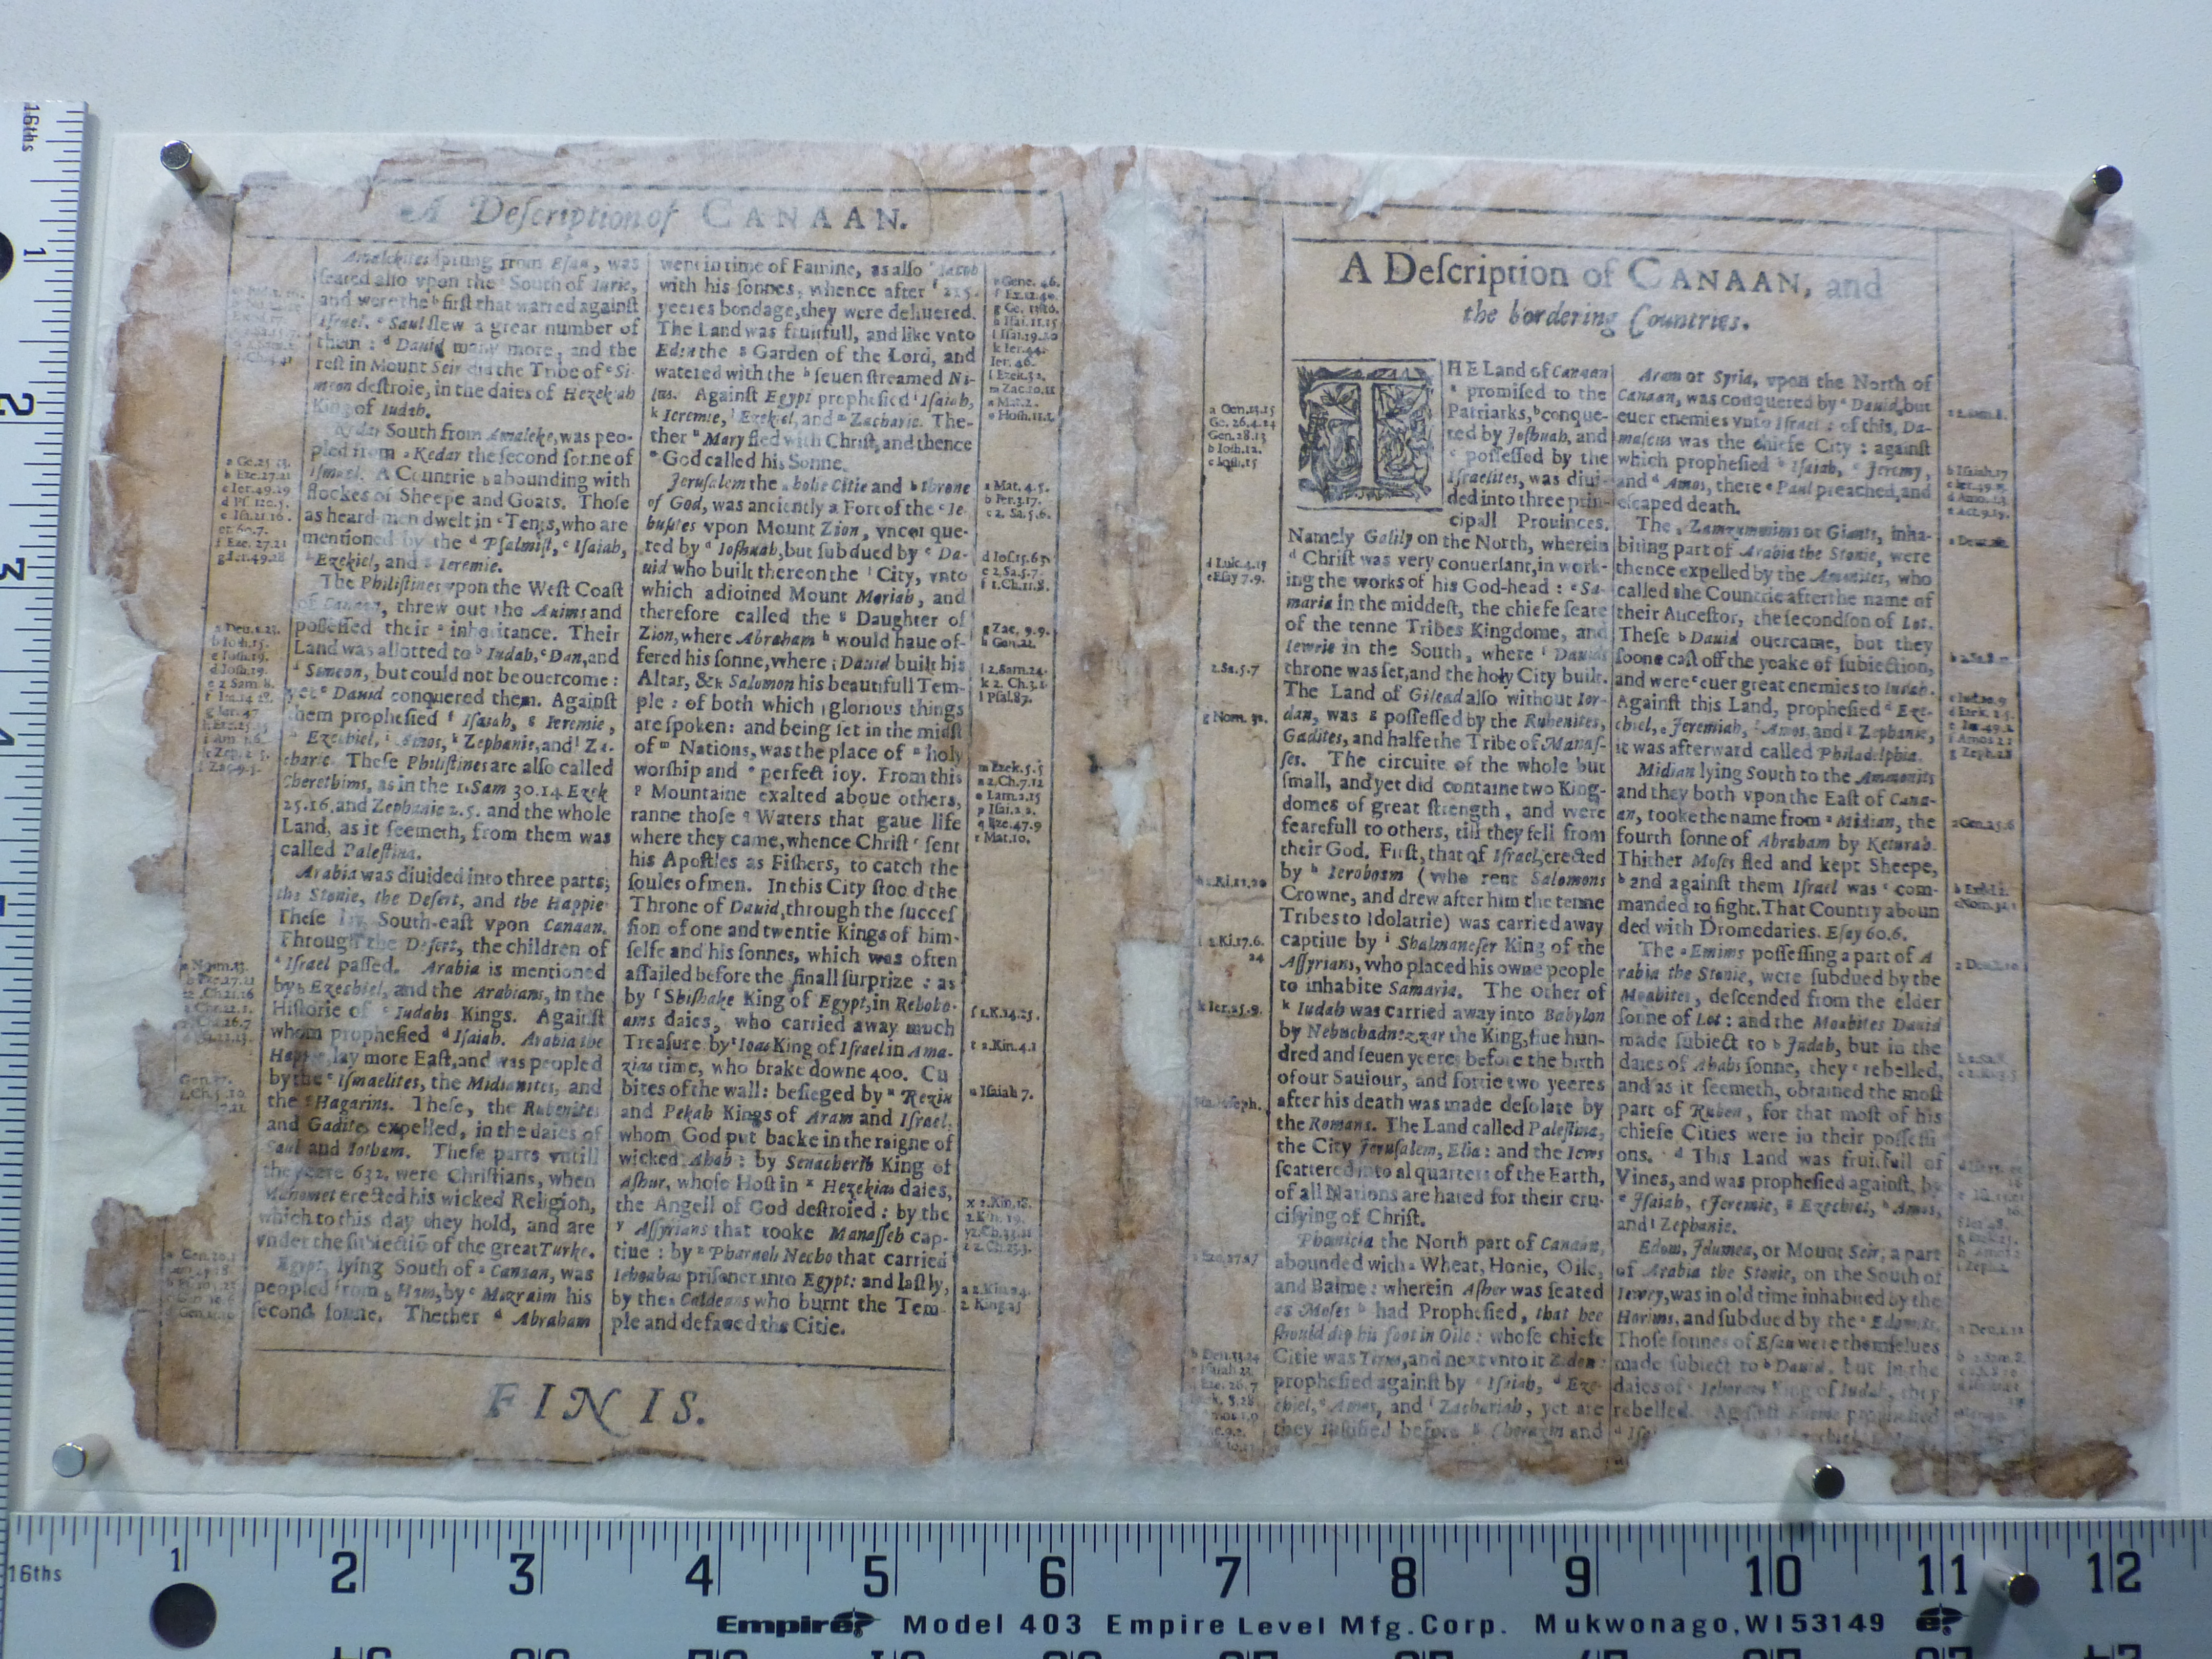 A Deſcription of CANAAN.
Amalekites ſprung from Eſau, was
ſeated alſo vpon the South of Iurie,
and were the b firſt that warred againſt
Iſrael. c Saul ſlew a great number of
them : d Dauid many more, and the
reſt in Mount Seir did the Tribe of e Si-
meon deſtroie, in the daies of Hezekiah
King of Iudah.
Kedar South from Amaleke, was peo-
pled from a Kedar the ſecond ſonne of
Iſmael. A Countrie b abounding with
flockes of Sheepe and Goats. Thoſe
as heard-men dwelt in c Tents, who are
mentioned by the d Pſalmiſt, e Iſaiah,
f Ezekiel, and g Ieremie.
The Philiſtines vpon the Weſt Coaſt
of Canaan, threw out the Auims and
poſſeſſed their a inheritance. Their
Land was allotted to b Iudah, c Dan, and
d Simeon, but could not be ouercome :
yet e Dauid conquered them. Againſt
them propheſied f Iſaiah, g Ieremie,
h Ezechiel, i Amos, k Zephanie, and l Za-
charie. Theſe Philiſtines are alſo called
Cherethims, as in the 1. Sam 30.14 Ezek
25.16. and Zephanie 2.5. and the whole
Land, as it ſeemeth, from them was
called Paleſtina.
Arabia was diuided into three parts;
the Stonie, the Deſert, and the Happie
Theſe lay South-eaſt vpon Canaan.
Through the Deſert, the children of
a Iſrael paſſed. Arabia is mentioned
by b Ezechiel, and the Arabians, in the
Hiſtorie of c Iudahs Kings. Againſt
whom propheſied d Iſaiah. Arabia the
Happie lay more Eaſt, and was peopled
by the e Iſmaelites, the Midianites, and
the Hagarins. Theſe, the Rubenites
and Gadites expelled, in the daies of
Saul and Iotham. Theſe parts vntill
the yeare 632. were Chriſtians, when
Mahomet erected his wicked Religion,
which to this day they hold, and are
vnder the ſubiectiō of the great Turke.
Egypt, lying South of a Canaan, was
peopled from b Ham, by c Mizraim his
ſecond ſonne. Thether d Abraham
a Ge. 25 13.
b Eze. 27.21
c Ier. 49.29
d Pſ 120.5.
e Iſa. 21.16.
f Eze. 27.21
g Ier. 49.28
went in time of Famine, as alſo e Iacob
with his ſonnes, whence after f 215.
yeeres bondage, they were deliuered.
The Land was fruitfull, and like vnto
Eden the g Garden of the Lord, and
watered with the h ſeuen ſtreamed Ni-
lus. Againſt Egypt propheſied i Iſaiah,
k Ieremie, l Ezekiel, and m Zacharie. The-
ther n Mary fled with Chriſt, and thence
o God called his Sonne.
Jeruſalem the a holie Citie and b throne
of God, was anciently a Fort of the c Ie-
buſites vpon Mount Zion, vncon que-
red by d Ioſhuah, but ſubdued by e Da-
uid who built thereon the f City, vnto
which adioined Mount Moriah, and
therefore called the g Daughter of
Zion, where Abraham h would haue of-
fered his ſonne, where i Dauid built his
Altar, & k Salomon his beautifull Tem-
ple : of both which l glorious things
are ſpoken: and being ſet in the midſt
of m Nations, was the place of n holy
worſhip and o perfect ioy. From this
p Mountaine exalted aboue others,
ranne thoſe q Waters that gaue life
where they came, whence Chriſt r ſent
his Apoſtles as Fiſhers, to catch the
ſoules of men. In this City ſtood the
Throne of Dauid, through the ſucceſ
ſion of one and twentie Kings of him-
ſelfe and his ſonnes, which was often
aſſailed before the finall ſurprize : as
by ſ Shiſhake King of Egypt, in Rehobo-
ams daies, who carried away much
Treaſure by t Ioas King of Iſrael in Ama-
zias time, who brake downe 400. Cu
bites of the wall: beſieged by u Rezin
and Pekah Kings of Aram and Iſrael,
whom God put backe in the raigne of
wicked Ahab : by Senacherib King of
Aſhur, whoſe Hoſt in x Hezekias daies,
the Angell of God deſtroied : by the
y Aſſyrians that tooke Manaſſeh cap-
tiue : by z Pharaoh Necho that carried
Iehoahas priſoner into Egypt: and laſtly,
by the a Caldeans who burnt the Tem
ple and defaced the Citie.
e Gene. 46.
f Ex. 12.40.
h Iſai. 11.15
i Iſai. 19.20
k Ier. 44.
Ier. 46.
l Ezek. 32.
m Zac. 10.11
n Mat. 2.
o Hoſh. 11.1.
a Mat. 4.5.
b Ier. 3.17.
c 2. Sa. 5.6.
d Ioſ. 15.63.
e 2. Sa. 5.7.
f 1. Ch. 11.8.
g Zac. 9.9.
h Gen. 22.
i 2. Sam. 24.
k 2. Ch. 3.1.
l Pſal. 87.
m Ezek. 5.5
n 2. Ch. 7.12
o Lam. 2.15
p Iſai. 2.2.
q Eze. 47.9
r Mat. 10.
ſ 1. K. 14.25.
t 2. Kin. 4.1
u Iſaiah 7.
x 2. Kin. 18.
a 2. Kin 24.
2. King 25
FINIS.
A Deſcription of CANAAN, and
the bordering Countries.
THE Land of Canaan
a promiſed to the
Patriarks, b conque-
red by Joſhuah, and
c poſſeſſed by the
Iſraelites, was diui-
ded into three prin-
cipall Prouinces.
Namely Galily on the North, wherein
d Chriſt was very conuerſant, in work-
ing the works of his God-head : e Sa-
maria in the middeſt, the chiefe ſeate
of the tenne Tribes Kingdome, and
Iewrie in the South, where f Dauids
throne was ſet, and the holy City built.
The Land of Gilead alſo without Ior-
dan, was g poſſeſſed by the Rubenites,
Gadites, and halfe the Tribe of Manaſ-
ſes. The circuite of the whole but
ſmall, and yet did containe two King-
domes of great ſtrength, and were
fearefull to others, till they fell from
their God. Firſt, that of Iſrael, erected
by h Ieroboam (who rent Salomons
Crowne, and drew after him the tenne
Tribes to Idolatrie) was carried away
captiue by i Shalmaneſer King of the
Aſſyrians, who placed his owne people
to inhabite Samaria. The other of
k Iudah was carried away into Babylon
by Nebuchadnezzar the King, fiue hun-
dred and ſeuen yeeres before the birth
of our Sauiour, and fortie two yeeres
after his death was made deſolate by
the Romans. The Land called Paleſtina,
the City Jeruſalem, Elia: and the Iews
ſcattered into al quarters of the Earth,
of all Nations are hated for their cru-
cifying of Chriſt.
Phœnicia the North part of Canaan,
abounded with a Wheat, Honie, Oile,
and Balme : wherein Aſher was ſeated
as Moſes b had Propheſied, that hee
ſhould dip his foot in Oile : whoſe chiefe
Citie was Tirus, and next vnto it Zidon :
propheſied againſt by c Iſaiah, d Eze-
chiel, e Amos, and f Zachariah, yet are
they before g Chorazin and
a Gen. 13.15
Ge. 26.4.24
Gen. 28.13
b Ioſh. 12.
c Ioſh. 15
d Luk. 4.15
e Eſay 7.9.
2. Sa. 5.7
g Nom. 32.
h 1. Ki. 12.20
i 2. Ki. 17.6.
24
k Ier. 25.9.
Aram or Syria, vpon the North of
Canaan, was conquered by a Dauid, but
euer enemies vnto Iſrael : of this, Da-
maſcus was the chiefe City : againſt
which propheſied b Iſaiah, c Jeremy,
and d Amos, there e Paul preached, and
eſcaped death.
The a Zamzummims or Giants, inha-
biting part of Arabia the Stonie, were
thence expelled by the Ammonites, who
called the Countrie after the name of
their Anceſtor, the ſecond ſon of Lot.
Theſe b Dauid ouercame, but they
ſoone caſt off the yoake of ſubiection,
and were c euer great enemies to Iudah.
Againſt this Land, propheſied d Eze-
chiel, e Jeremiah, f Amos, and g Zephanie,
it was afterward called Philadelphia.
Midian lying South to the Ammonits
and they both vpon the Eaſt of Cana-
an, tooke the name from a Midian, the
fourth ſonne of Abraham by Keturah.
Thither Moſes fled and kept Sheepe,
b and againſt them Iſrael was c com-
manded to fight. That Country aboun
ded with Dromedaries. Eſay 60.6.
The a Emims poſſeſſing a part of A
rabia the Stonie, were ſubdued by the
Moabites, deſcended from the elder
ſonne of Lot : and the Moabites Dauid
made ſubiect to b Judah, but in the
daies of Ahabs ſonne, they c rebelled,
and as it ſeemeth, obtained the moſt
part of Ruben, for that moſt of his
chiefe Cities were in their poſſeſſi
ons. d This Land was fruitfull of
Vines, and was propheſied againſt, by
e Iſaiah, f Jeremie, g Ezechiel, h Amos,
and i Zephanie.
Edom, Jdumea, or Mount Seir, a part
of Arabia the Stonie, on the South of
Iewry, was in old time inhabited by the
Horims, and ſubdued by the a Edomits.
Thoſe ſonnes of Eſau were themſelues
made ſubiect to b Dauid, but in the
daies of c Iehoram King of Iudah, they
rebelled.
b Iſaiah. 17
c Ier. 49.
e Act. 9.19.
a Deut. 2.
d Ezek. 25.
g Zeph. 2.8
a Gen. 25.6
16ths
1
2
3
16ths
1
2
3
4
5
6
7
8
9
10
11
12
Empire Model 403 Empire Level Mfg. Corp. Mukwonago, WI 53149 e.